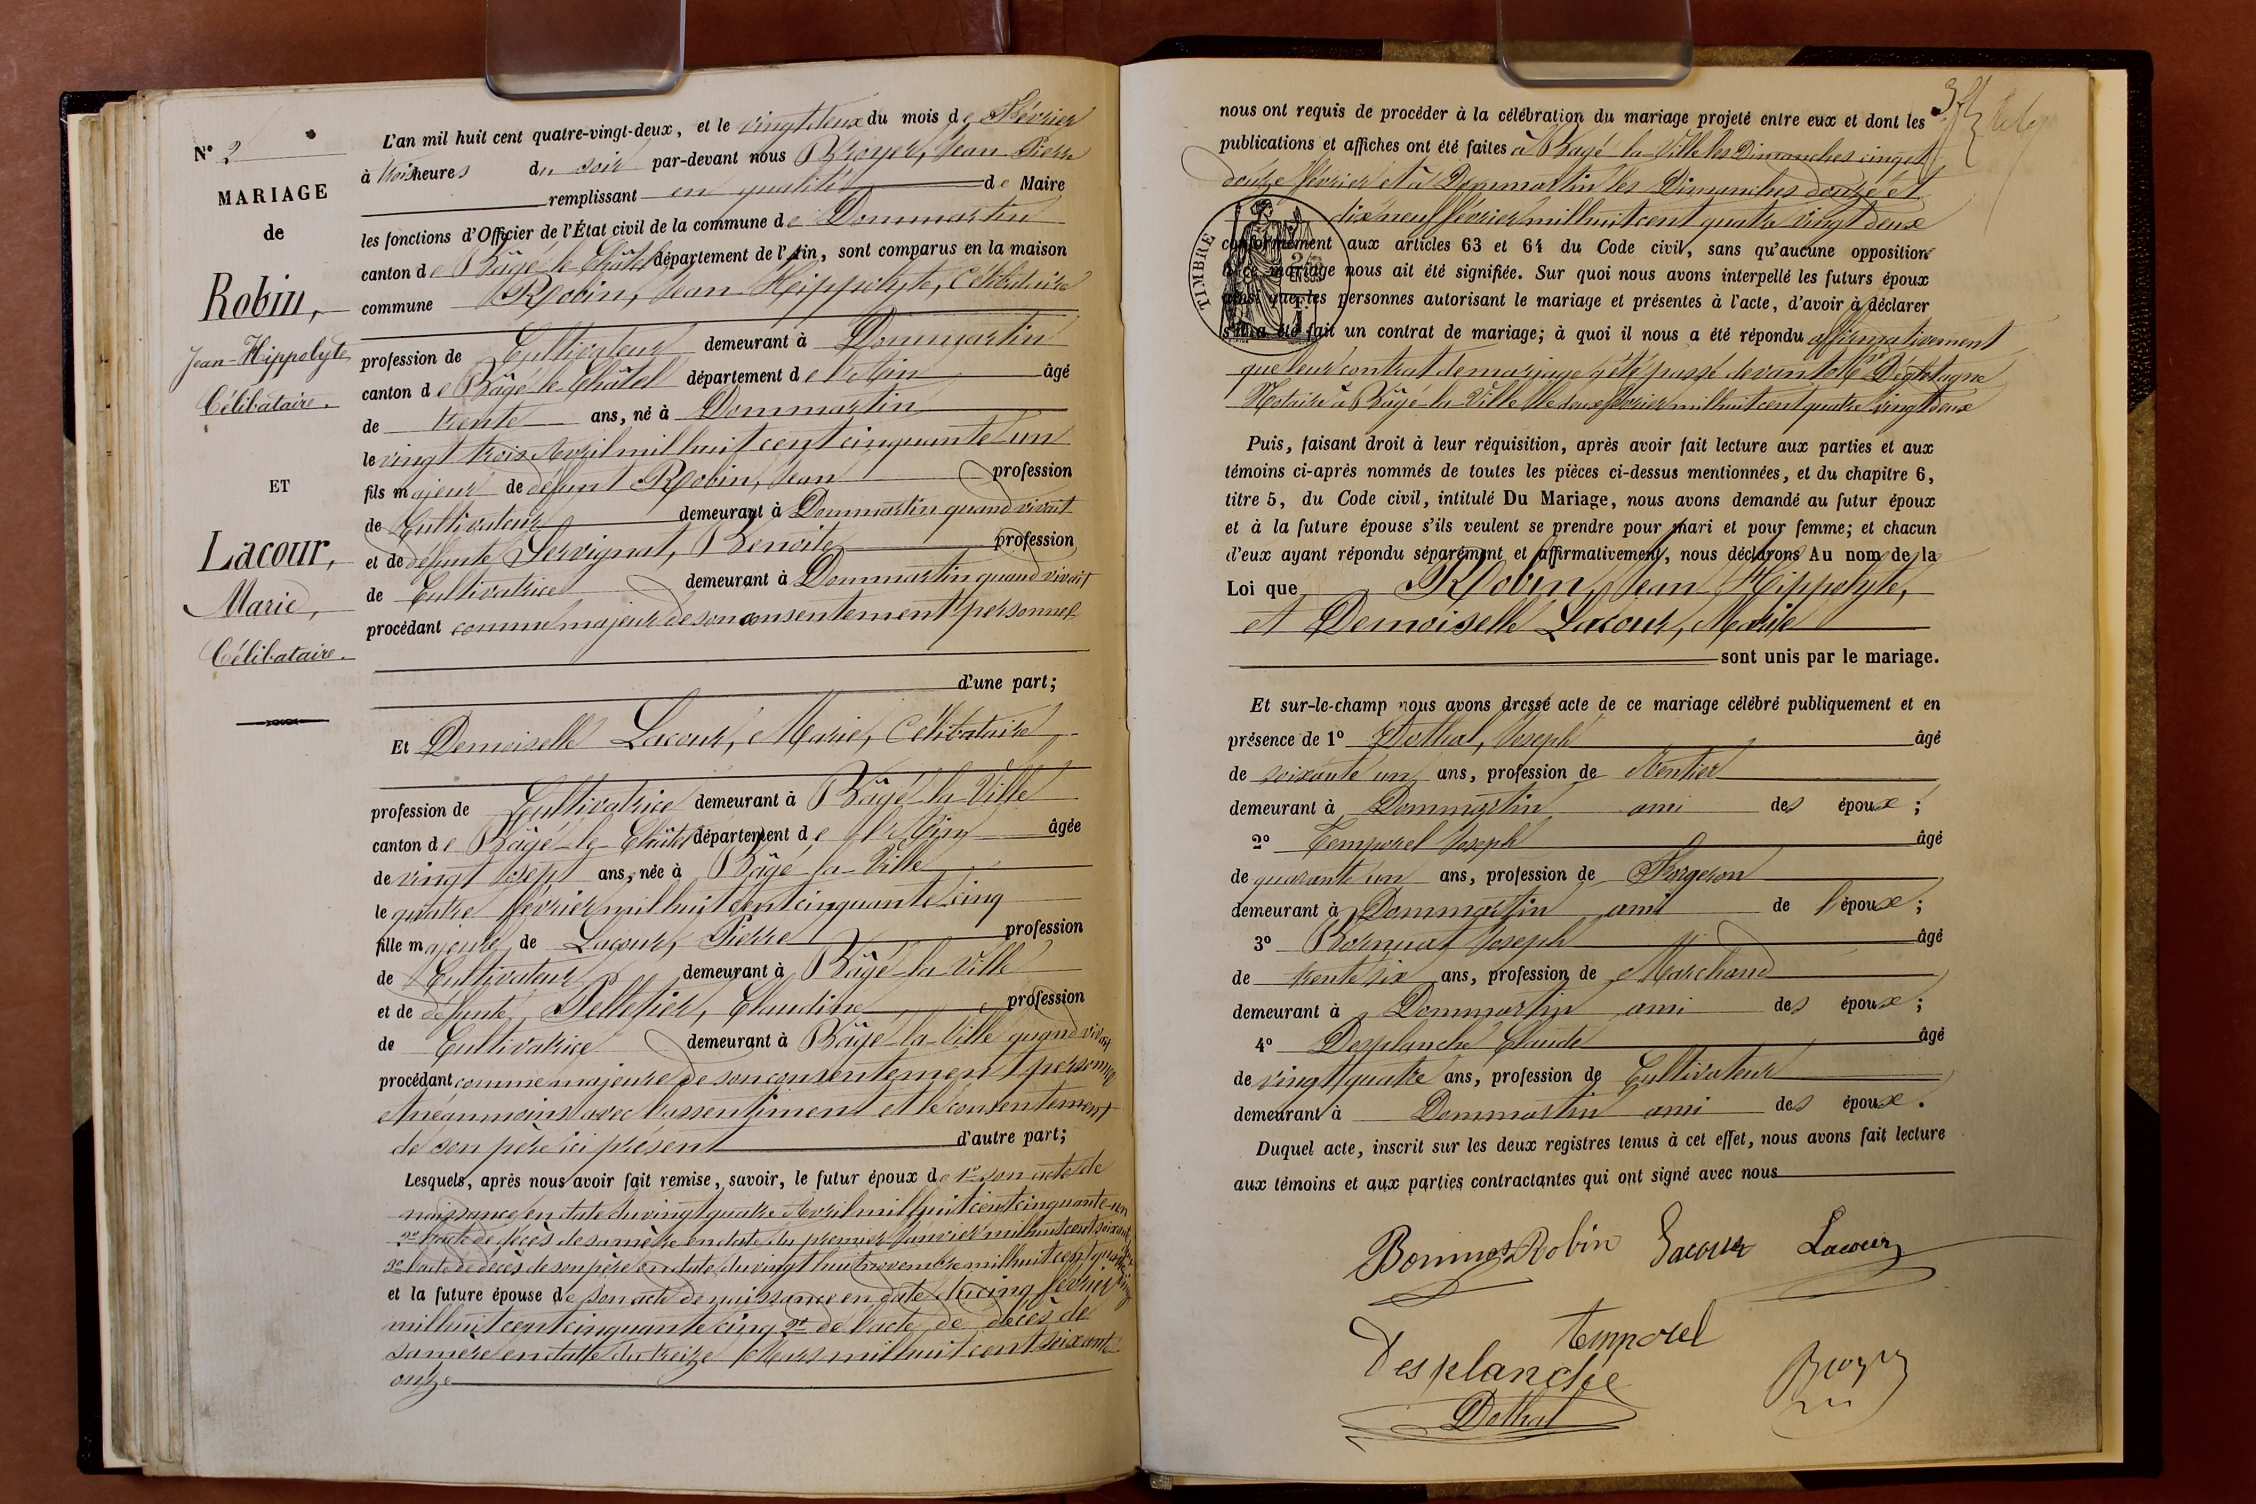 N° 2
MARIAGE
de
Robin,
Jean-Hippolyte,
Célibataire.
ET
Lacour,
Marie,
Célibataire.
L'an mil huit cent quatre-vingt-deux, et le vingt deux du mois de Février
à trois heures du soir par-devant nous Broyer, Jean Pierre
remplissant en qualité de Maire
les fonctions d'Officier de l'État civil de la commune de Dommartin
canton de Bâgé-le-Châtel département de l'Ain, sont comparus en la maison
commune Robin, Jean Hippolyte, Célibataire
profession de Cultivateur demeurant à Dommartin
canton de Bâgé-le-Châtel département de l'Ain âgé
de trente ans, né à Dommartin
le vingt trois Avril mil huit cent cinquante un
fils majeur de défunt Robin, Jean profession
de Cultivateur demeurant à Dommartin quand vivait
et de défunte Servignat, Benoite profession
de Cultivatrice demeurant à Dommartin quand vivait
procédant comme majeur de son consentement personnel
d'une part;
Et Demoiselle Lacour, Marie, Célibataire
profession de Cultivatrice demeurant à Bâgé-la-Ville
canton de Bâgé-le-Châtel département de l'Ain âgée
de vingt sept ans, née à Bâgé-la-Ville
le quatre février mil huit cent cinquante cinq
fille majeure de Lacour, Pierre profession
de Cultivateur demeurant à Bâgé-la-Ville
et de défunte Pelletier, Claudine profession
de Cultivatrice demeurant à Bâgé-la-Ville quand vivait
procédant comme majeure de son consentement personnel
et néanmoins avec l'assentiment et le consentement
de son père ici présent d'autre part;
Lesquels, après nous avoir fait remise, savoir, le futur époux de 1° son acte de
naissance en date du vingt quatre Avril mil huit cent cinquante-un
2° l'acte de décès de sa mère en date du premier Janvier mil huit cent soixante
3° l'acte de décès de son père en date du vingt huit novembre mil huit cent
et la future épouse de son acte de naissance en date du cinq février
mil huit cent cinquante cinq 2° de l'acte de décès de
sa mère en date du treize Mars mil huit cent soixante
onze
nous ont requis de procéder à la célébration du mariage projeté entre eux et dont les
publications et affiches ont été faites à Bâgé-la-Ville les Dimanches cinq et
douze février et à Dommartin les Dimanches douze et
dix neuf février mil huit cent quatre vingt deux
TIMBRE
conformément aux articles 63 et 64 du Code civil, sans qu'aucune opposition
à ce mariage nous ait été signifiée. Sur quoi nous avons interpellé les futurs époux
ainsi que les personnes autorisant le mariage et présentes à l'acte, d'avoir à déclarer
s'il a été fait un contrat de mariage; à quoi il nous a été répondu affirmativement
que leur contrat de mariage a été passé devant
Notaire à Bâgé-la-Ville le deux février mil huit cent quatre vingt deux
Puis, faisant droit à leur réquisition, après avoir fait lecture aux parties et aux
témoins ci-après nommés de toutes les pièces ci-dessus mentionnées, et du chapitre 6,
titre 5, du Code civil, intitulé Du Mariage, nous avons demandé au futur époux
et à la future épouse s'ils veulent se prendre pour mari et pour femme; et chacun
d'eux ayant répondu séparément et affirmativement, nous déclarons Au nom de la
Loi que Robin, Jean Hippolyte,
et Demoiselle Lacour, Marie
sont unis par le mariage.
Et sur-le-champ nous avons dressé acte de ce mariage célébré publiquement et en
présence de 1° Dothal, Joseph âgé
de soixante un ans, profession de Rentier
demeurant à Dommartin ami des époux;
2° Temporel Joseph âgé
de quarante un ans, profession de Forgeron
demeurant à Dommartin ami de l'époux;
3° Joseph âgé
de trente six ans, profession de Marchand
demeurant à Dommartin ami des époux;
4° Desplanche Claude âgé
de vingt quatre ans, profession de Cultivateur
demeurant à Dommartin ami des époux.
Duquel acte, inscrit sur les deux registres tenus à cet effet, nous avons fait lecture
aux témoins et aux parties contractantes qui ont signé avec nous
Robin Lacour Lacour
temporel
Desplanche
Dothal